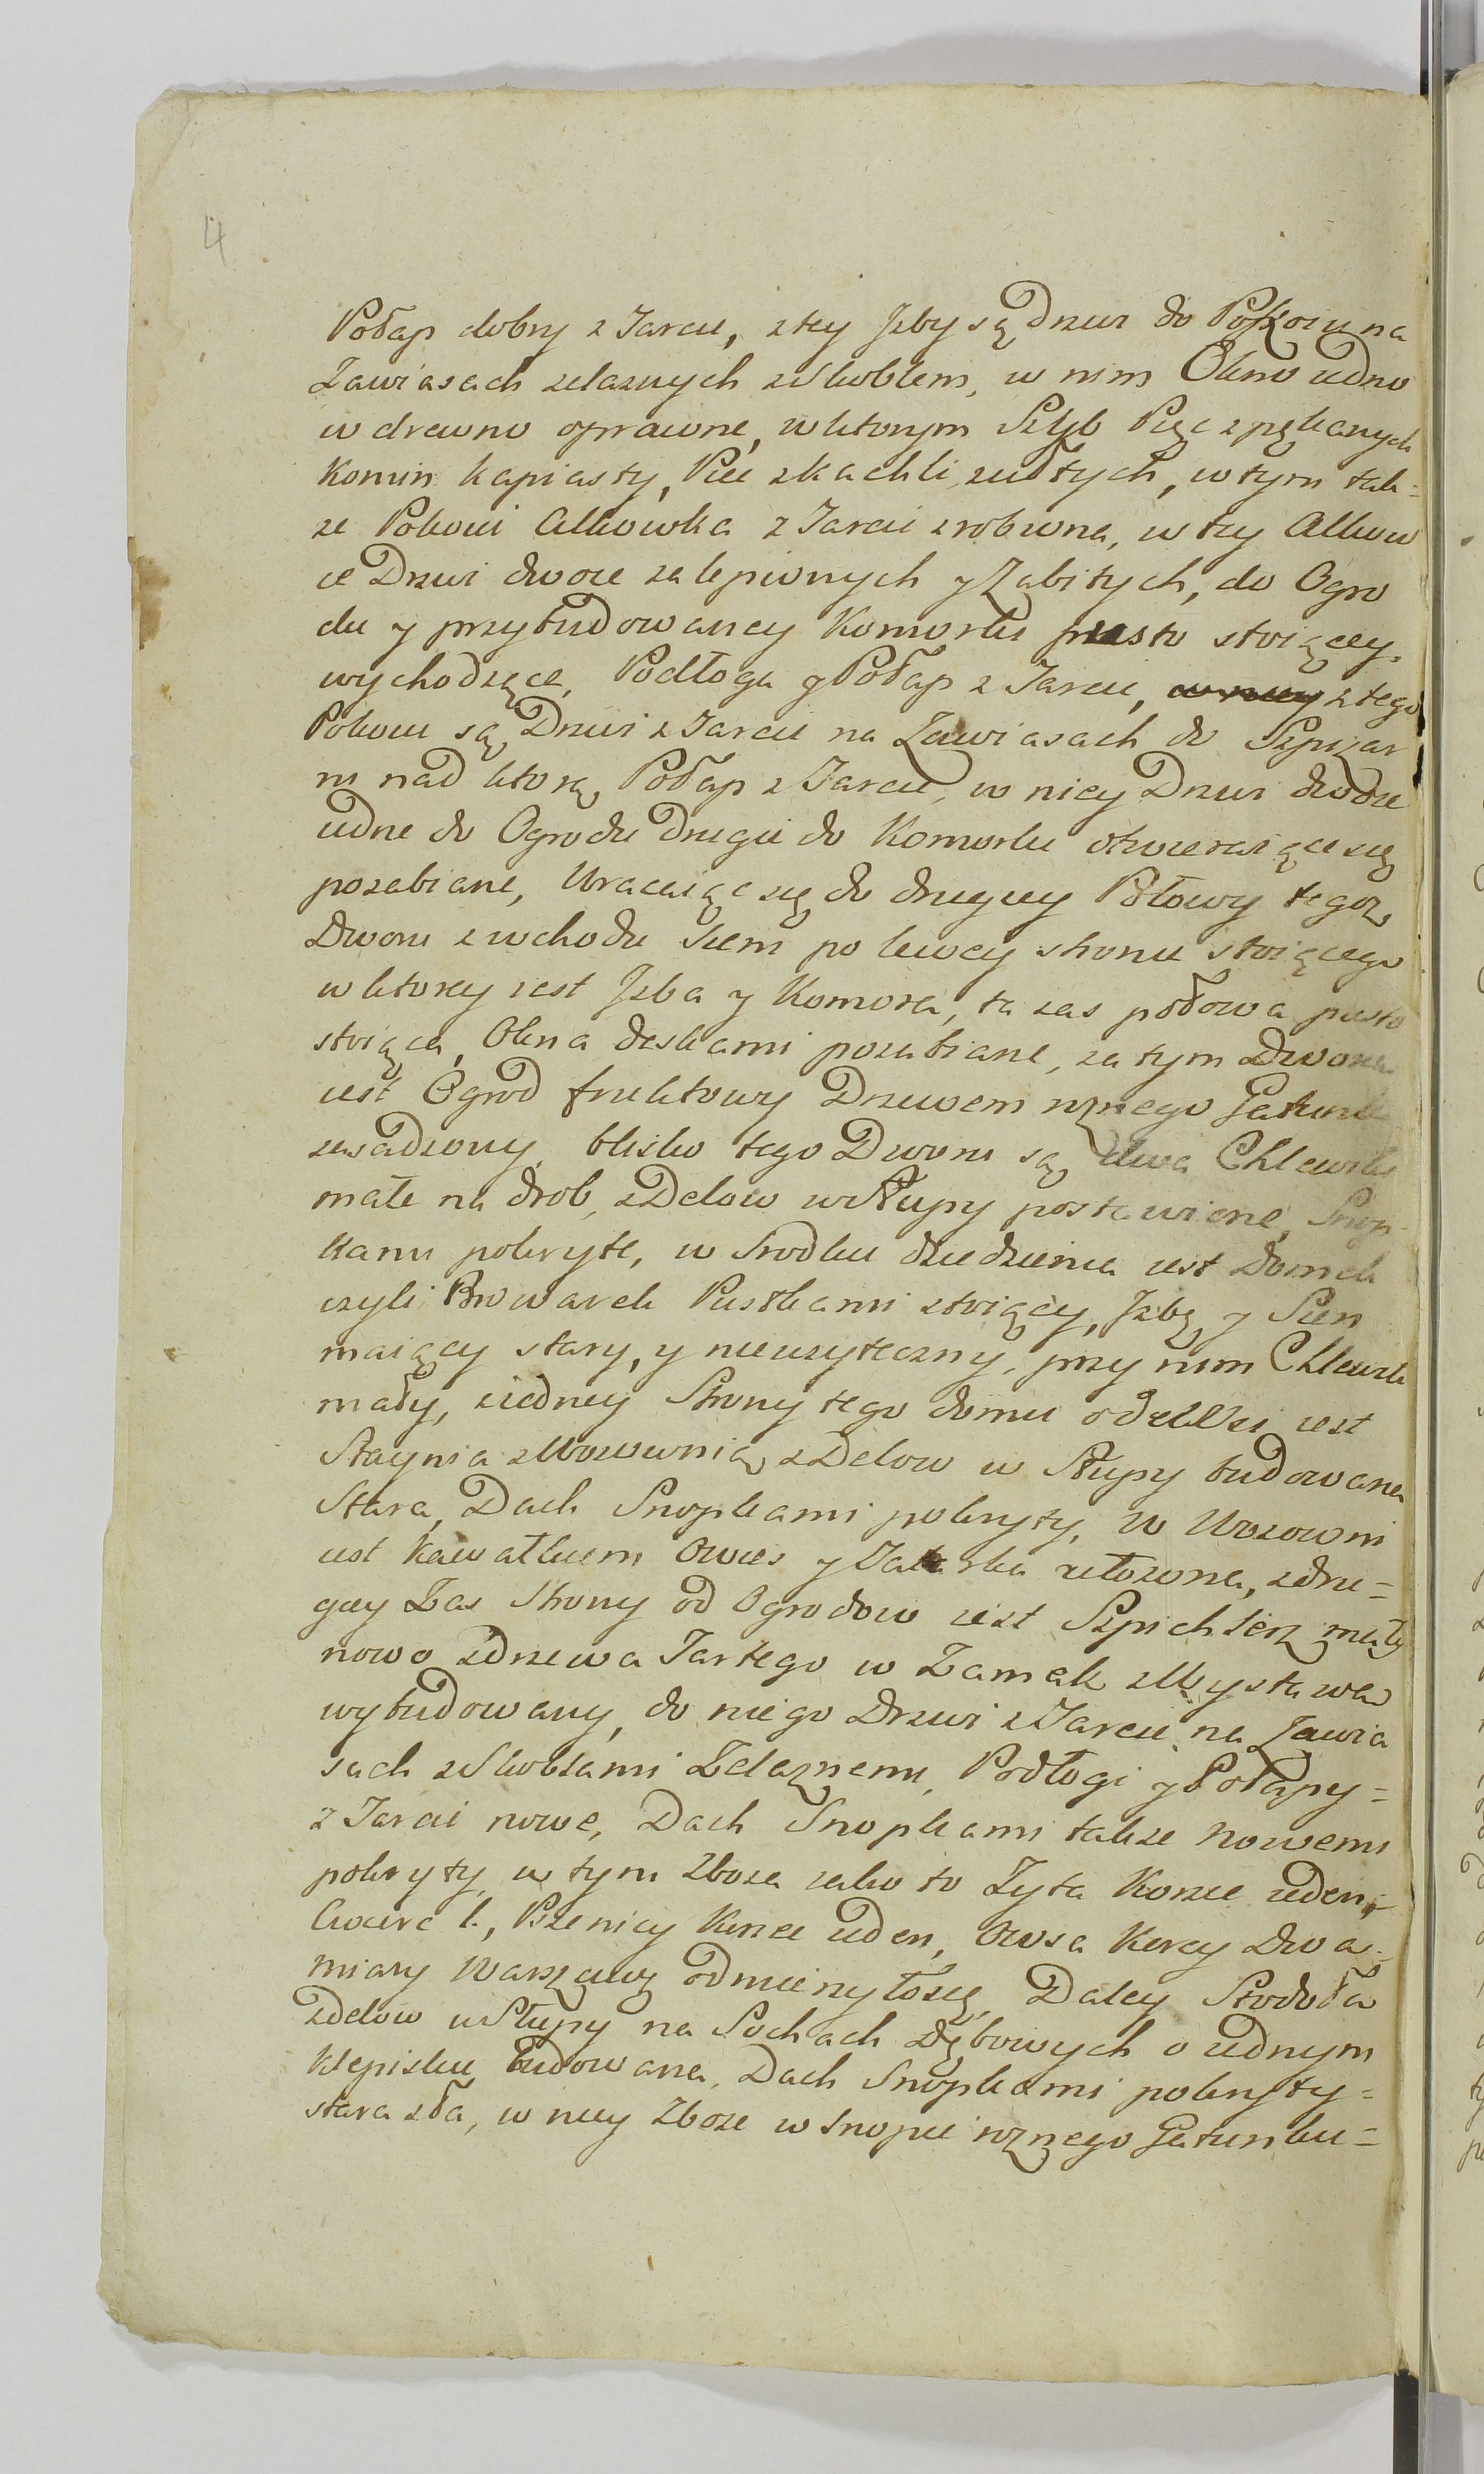 4
Połap dobry z Tarcu, z tey Jzby są Drzwi do Pokoiu na
Zawiasach zelaznych z Skoblem, w nim Okno iedno
w drewno oprawne, w ktorym Szyb Pięc zpękanych
Komin kapiasty, Piec z kachli zołtych, w tym tak=
ze Pokoiu Alkowka z Tarcic zrobiona, w tey Alkow
ce Drzwi dwoie zalepionych y Zabitych, do Ogro
du y przybudowaney Komorki pusto stoiącey,
wychodzące, Podłoga y Połap z Tarcic, z tego
Pokoiu są Drzwi z Tarcic na Zawiasach do Szpizar
ni nad ktorą Połap z Tarcic, w niey Drzwi dwoie
iedne do Ogrodu drugie do Komorki otwieraiące się
pozabiane, Wracaiąc się do drugiey Połowy tegoz
Dworu z wchodu Sieni po lewey stronie stoiącego
w ktorey iest Jzba y Komora, ta zas połowa pusto
stoiąca, Okna deskami pozabiane, za tym Dworem
iest Ogrod fruktowy Drzewem roznego Gatunku
zasadzony, blisko tego Dworu są dwa Chlewiki
małe na drob, z Delow w Słupy postawione, Snop-
kami pokryte, w Srodku dziedzienca iest Domek
czyli Browarek Pustkami stoiący, Jzbę y Sien
maiący stary, y nieuzyteczny, przy nim Chlewek
mały, z iedney Strony tego domu od Wsi iest
Staynia z Wozownią z Delow w Słupy budowana
Stara, Dach Snopkami pokryty, w Wozowni
iest kawałkiem Owies y Tatarka złozona, z dru=
giey Zas Strony od Ogrodow iest Szpichlerz mały
nowo z drzewa Tartego w Zamek z Wystawą
wybudowany, do niego Drzwi z Tarcic na Zawia
sach z Skoblami Zelaznemi, Podłogi y Połapy=
z Tarcic nowe, Dach Snopkami takze Nowemi
pokryty, w tym Zboza iako to Zyta Korzec ieden,
Cwierc 1., Pszenicy Korzec ieden, Owsa Korcy Dwa
miary Warszawy odmierzyło się, Daley Stodoła
z delow w Słupy na Sochach dębowych o iednym
Klepisku budowana, Dach Snopkami pokryty=
stara zła, w niey Zboze w Snopie roznego Gatunku=